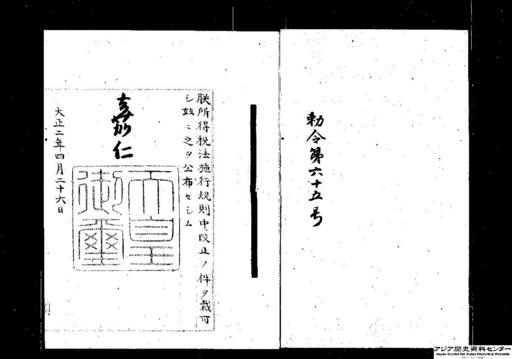 勅令第六十五号
朕所得税法施行規則中改正ノ件ヲ裁可
シ玆ニ之ヲ公布セシム
嘉仁
天皇
御璽
大正二年四月二十六日
アジア歴史資料センター
Japan Center for Asian Historical Records